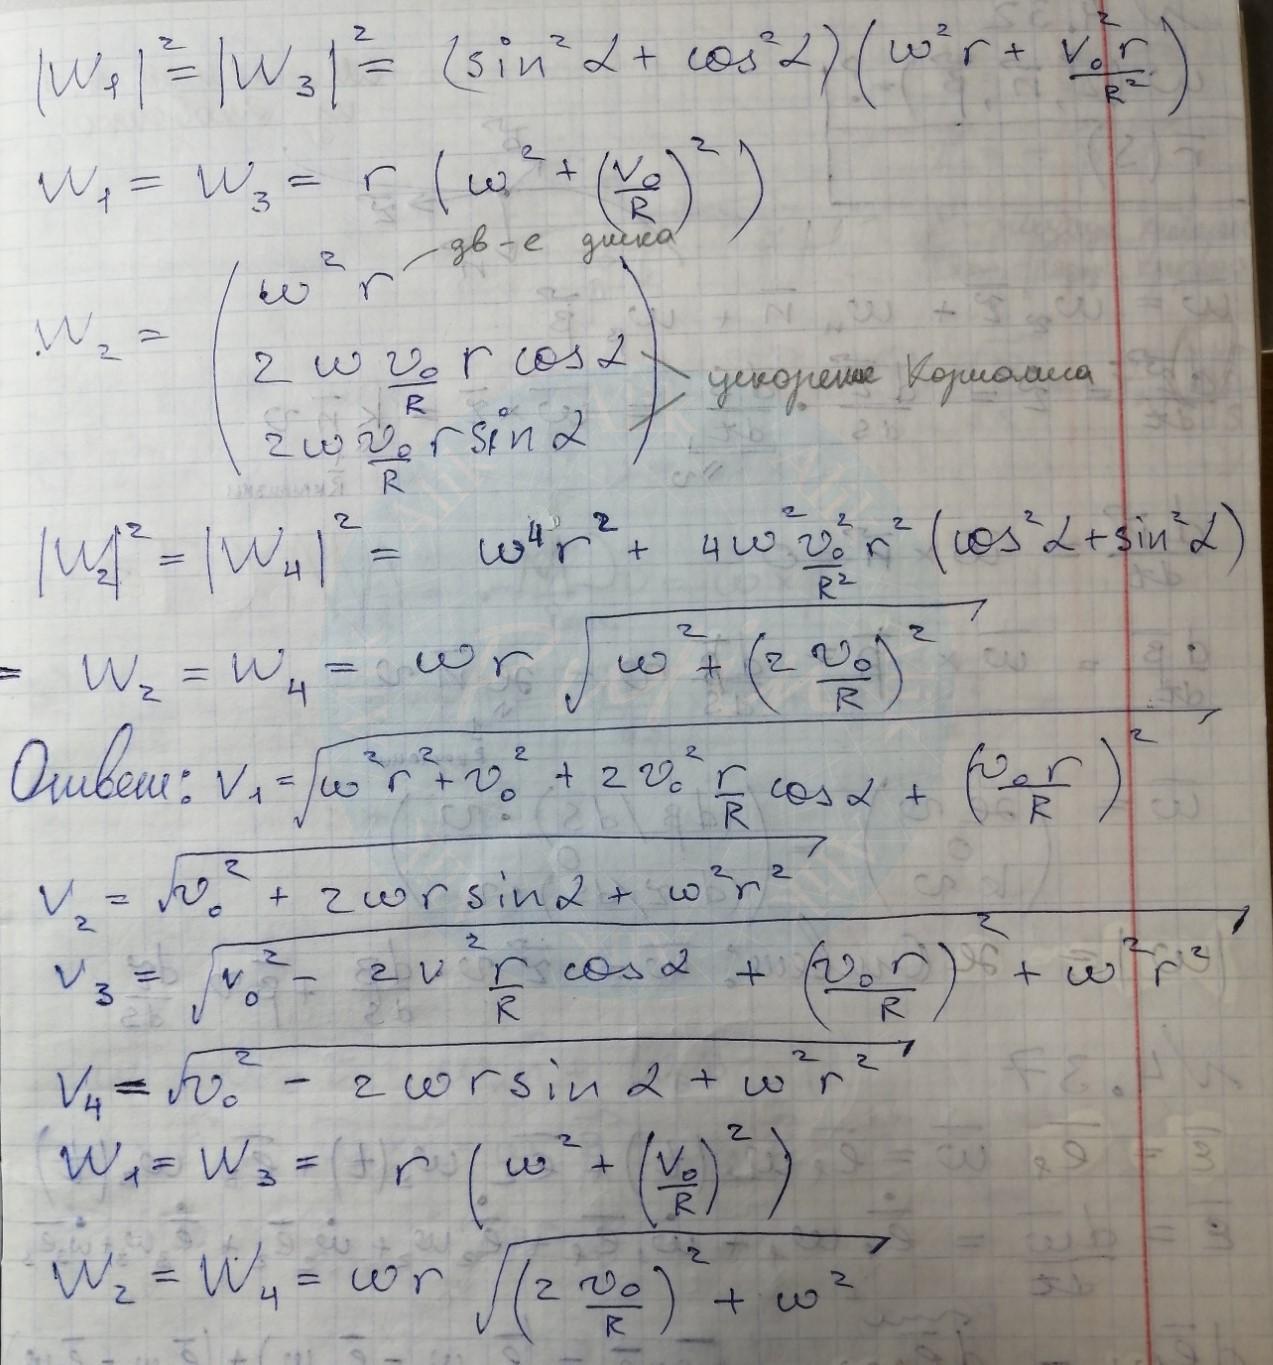 |W₁|² = |W₃|² = (sin²α + cos²α)(ω²r + v₀²r/R²)
W₁ = W₃ = r (ω² + (v₀/R)²)
дв-е диска
W₂ = (ω²r
2ω v₀/R r cosα
ускорение Кориолиса
2ω v₀/R r sinα)
|W₂|² = |W₄|² = ω⁴r² + 4ω² v₀²/R² r² (cos²α + sin²α)
= W₂ = W₄ = ωr √(ω² + (2 v₀/R)²)
Ответ: v₁ = √(ω²r² + v₀² + 2v₀² r/R cosα + (v₀r/R)²)
v₂ = √(v₀² + 2ωr sinα + ω²r²)
v₃ = √(v₀² − 2v² r/R cosα + (v₀r/R)² + ω²r²)
v₄ = √(v₀² − 2ωr sinα + ω²r²)
W₁ = W₃ = r (ω² + (v₀/R)²)
W₂ = W₄ = ωr √((2 v₀/R)² + ω²)